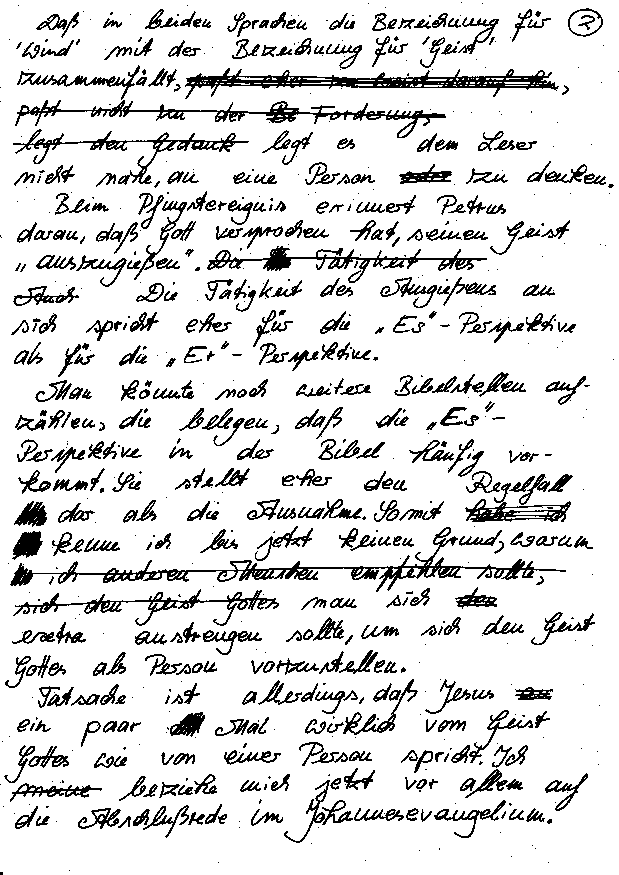 Daß in beiden Sprachen die Bezeichnung für ②
'Wind' mit der Bezeichnung für 'Geist'
zusammenfällt, paßt eher zu meist darauf hin,
paßt nicht zu der Be Forderung,
legt den Gedank legt es dem Leser
nicht nahe, an eine Person oder zu denken.
Beim Pfingstereignis erinnert Petrus
daran, daß Gott versprochen hat, seinen Geist
„auszugießen". Da Tätigkeit des
Auch Die Tätigkeit des Ausgießens an
sich spricht eher für die „Es"-Perspektive
als für die „Er"-Perspektive.
Man könnte noch weitere Bibelstellen auf-
zählen, die belegen, daß die „Es"-
Perspektive in der Bibel häufig vor-
kommt. Sie stellt eher den Regelfall
dar als die Ausnahme. Somit habe ich
kenne ich bis jetzt keinen Grund, warum
ich anderen Menschen empfehlen sollte,
sich den Geist Gottes man sich den
extra anstrengen sollte, um sich den Geist
Gottes als Person vorzustellen.
Tatsache ist allerdings, daß Jesus an
ein paar Mal wirklich vom Geist
Gottes wie von einer Person spricht. Ich
meine beziehe mich jetzt vor allem auf
die Abschlußrede im Johannesevangelium.